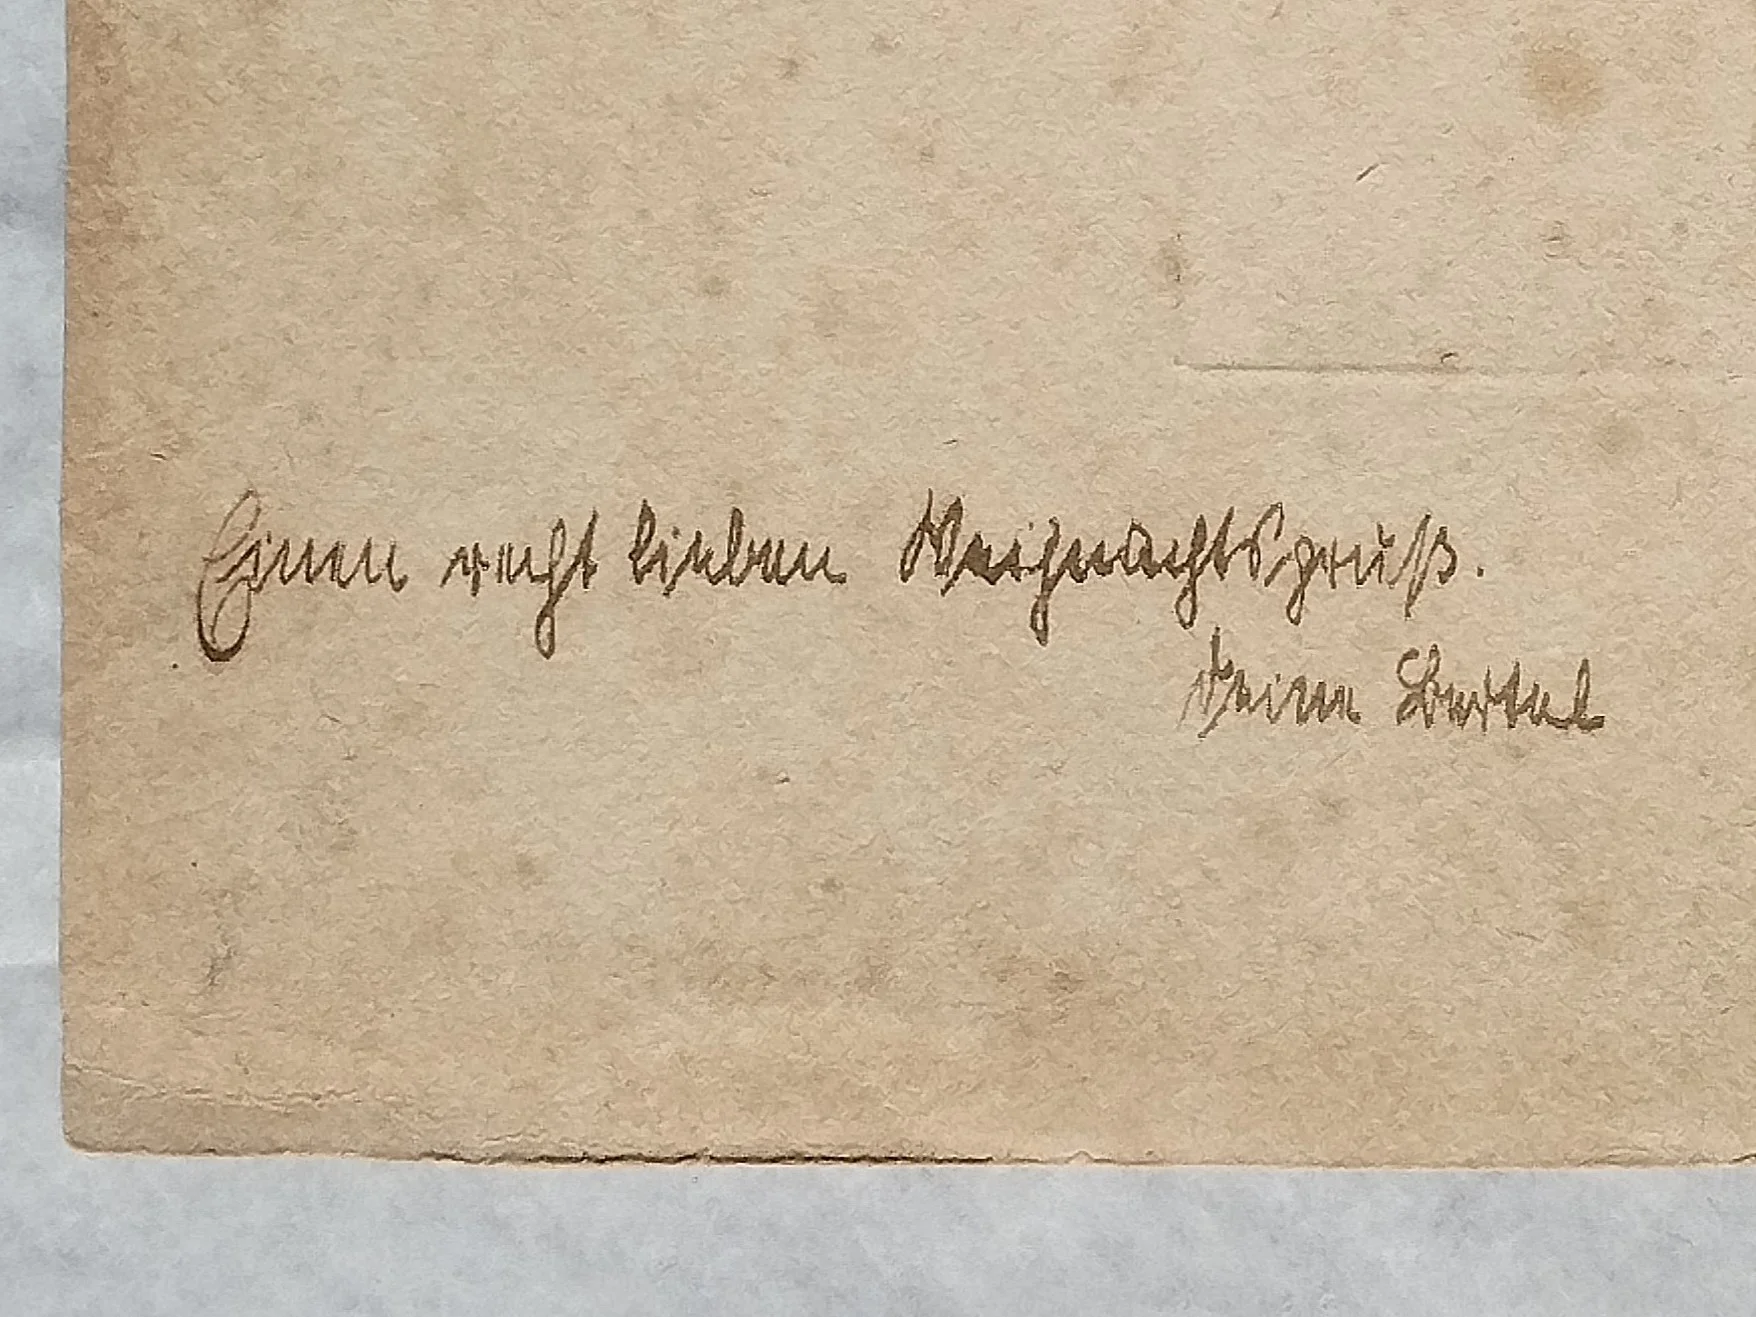 Einen recht lieben Weihnachtsgruß.
Deine Bertel